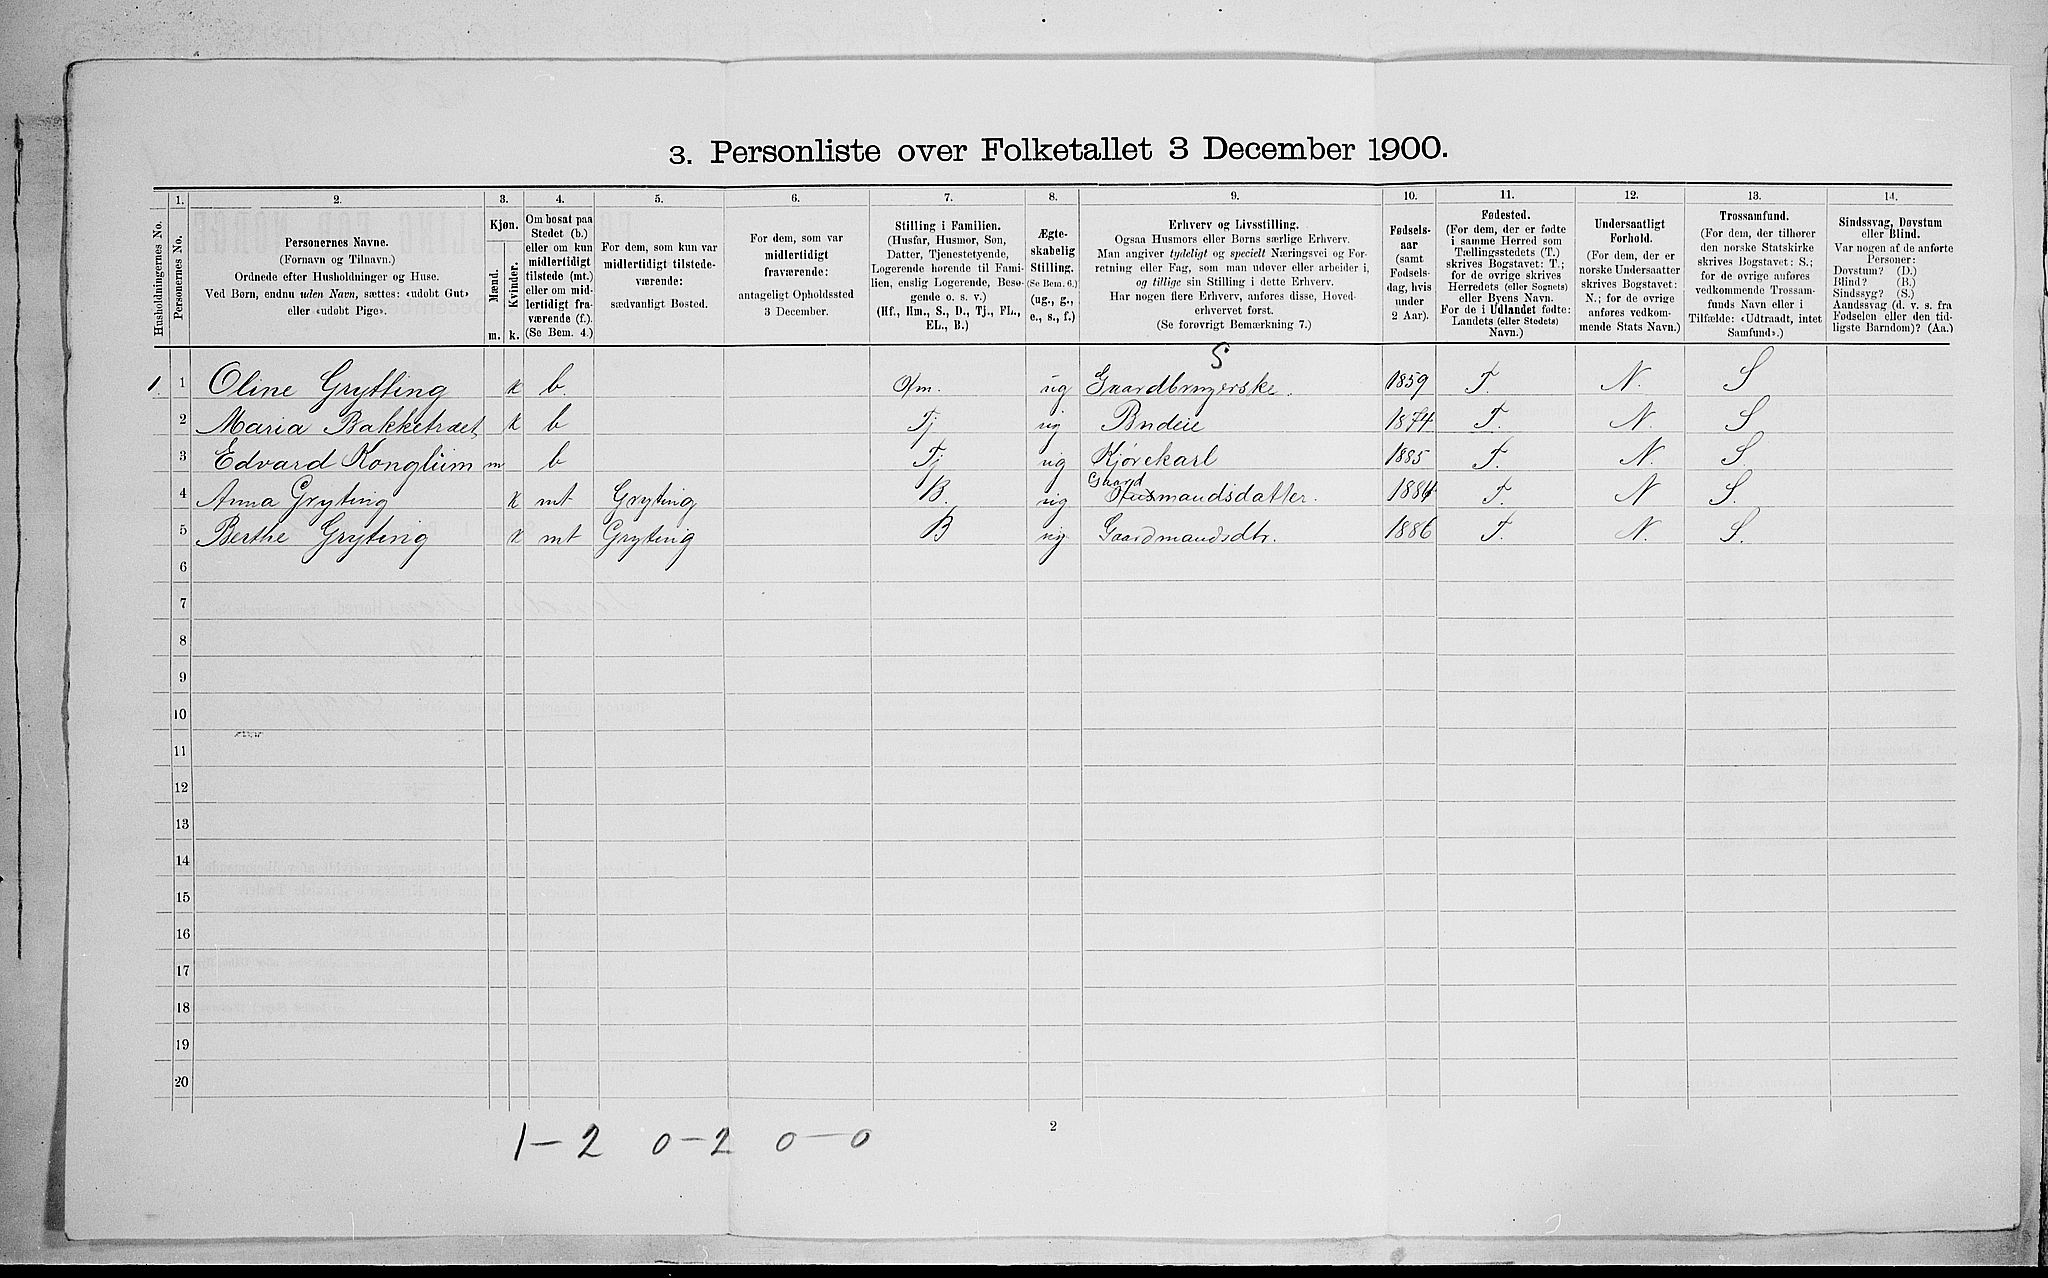 3. Personliste over Folketallet 3 December 1900.
Husholdningernes No.
1.
Personernes No.
2.
Personernes Navne.
(Fornavn og Tilnavn.)
Ordnede efter Husholdninger og Huse.
Ved Børn, endnu uden Navn, sættes: «udøbt Gut»
eller «udøbt Pige».
3.
Kjøn.
Mænd.
Kvinder.
m. k.
4.
Om bosat paa
Stedet (b.)
eller om kun
midlertidigt
tilstede (mt.)
eller om mid-
lertidigt fra-
værende (f.).
(Se Bem. 4.)
5.
For dem, som kun var
midlertidigt tilstede-
værende:
sædvanligt Bosted.
6.
For dem, som var
midlertidigt
fraværende:
antageligt Opholdssted
3 December.
7.
Stilling i Familien.
(Husfar, Husmor, Søn,
Datter, Tjenestetyende,
Logerende hørende til Fami-
lien, enslig Logerende, Besø-
gende o. s. v.)
(Hf., Hm., S., D., Tj., FL.,
EL., B.)
8.
Ægte-
skabelig
Stilling.
(Se Bem. 6.)
(ug., g.,
e., s., f.)
9.
Erhverv og Livsstilling.
Ogsaa Husmors eller Børns særlige Erhverv.
Man angiver tydeligt og specielt Næringsvei og For-
retning eller Fag, som man udøver eller arbeider i,
og tillige sin Stilling i dette Erhverv.
Har nogen flere Erhverv, anføres disse, Hoved-
erhvervet først.
(Se forøvrigt Bemærkning 7.)
10.
Fødsels-
aar
(samt
Fødsels-
dag, hvis
under
2 Aar).
11.
Fødested.
(For dem, der er fødte
i samme Herred som
Tællingsstedets (T.)
skrives Bogstavet: T.;
for de øvrige skrives
Herredets (eller Sognets)
eller Byens Navn.
For de i Udlandet fødte:
Landets (eller Stedets)
Navn.)
12.
Undersaatligt
Forhold.
(For dem, der er
norske Undersaatter
skrives Bogstavet:
N.; for de øvrige
anføres vedkom-
mende Stats Navn.)
13.
Trossamfund.
(For dem, der tilhører
den norske Statskirke
skrives Bogstavet: S.;
for de øvrige anføres
vedkommende Trossam-
funds Navn eller i
Tilfælde: «Udtraadt, intet
Samfund».)
14.
Sindssvag, Døvstum
eller Blind.
Var nogen af de anførte
Personer:
Døvstum? (D.)
Blind? (B.)
Sindssyg? (S.)
Aandssvag (d. v. s. fra
Fødselen eller den tid-
ligste Barndom)? (Aa.)
S
1. 1 Oline Grytting k b. Hm. ug Gaardbrugerske. 1859 T. N. S
2 Maria Bakketræet k b Tj ug Budeie 1874 T. N. S
3 Edvard Konglüm m b Tj ug Kjørekarl 1885 T. N. S.
Gaard
4 Anna Gryting k mt Gryting B. ug Husmandsdatter. 1884 T. N S.
5 Berthe Gryting k mt Gryting B ug Gaardmandsdtr. 1886 T. N. S.
6
7
8
9
10
11
12
13
14
15
16
17
18
19
20
2
1 – 2 0 – 2 0 – 0